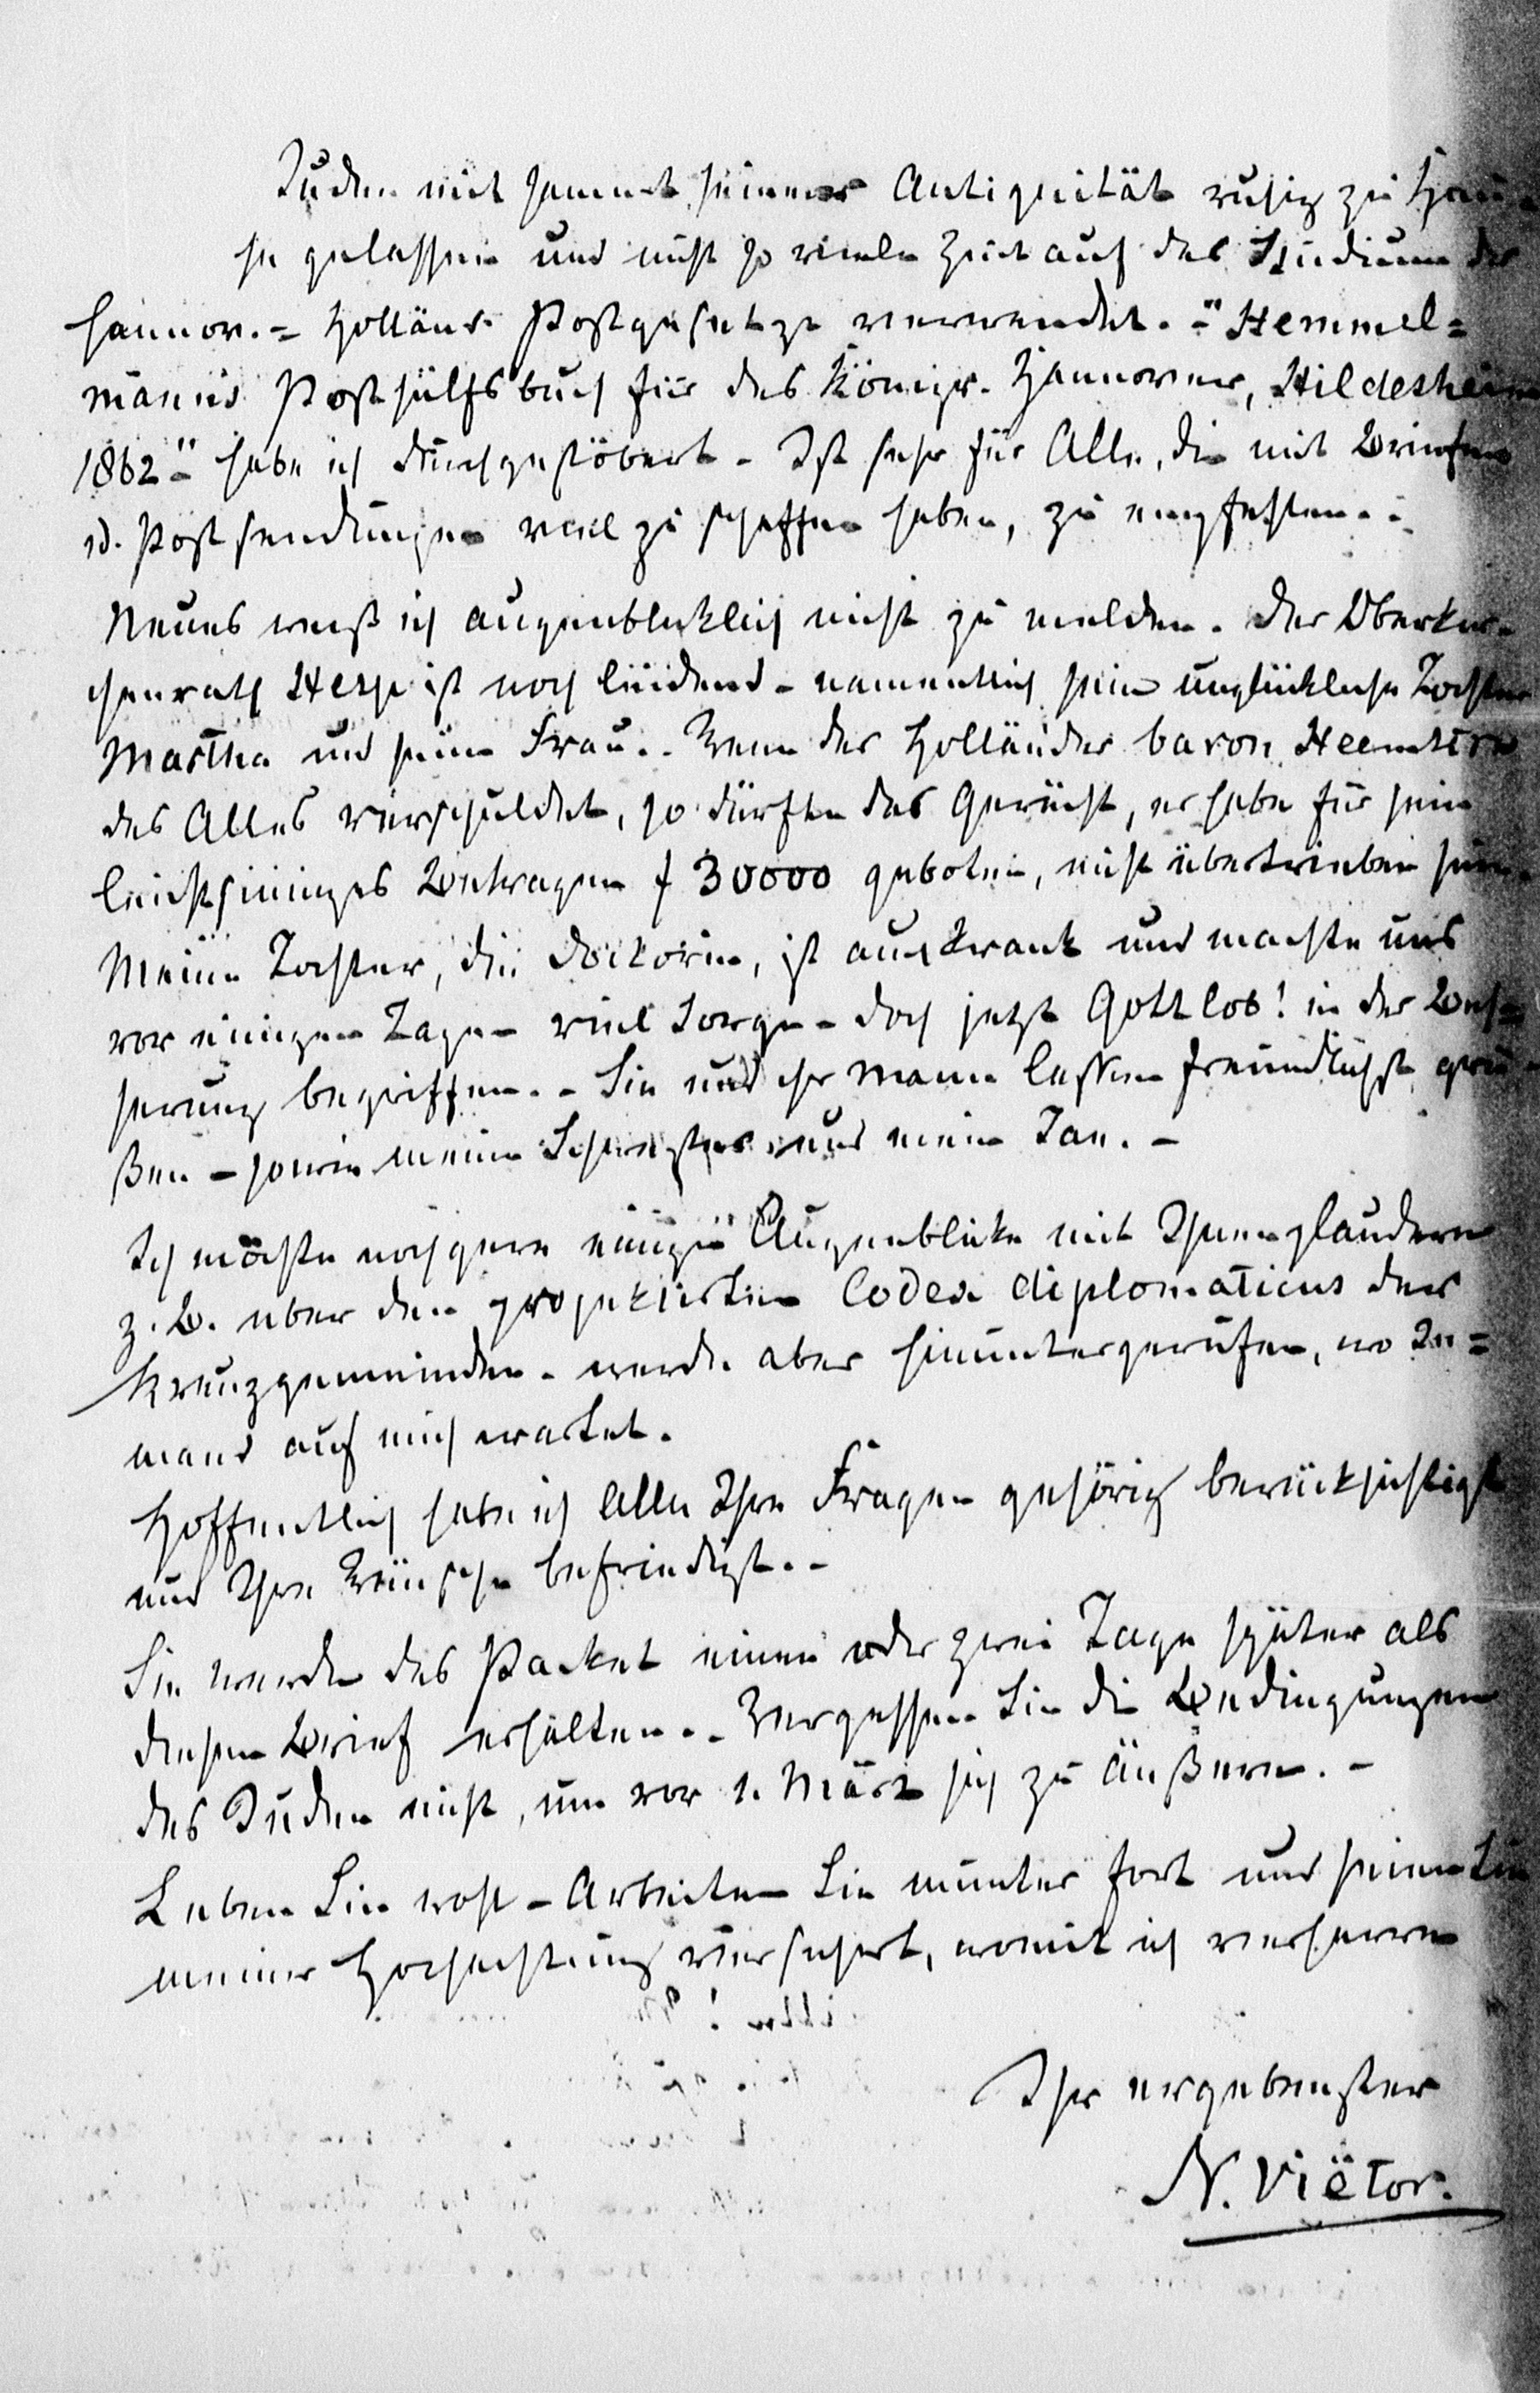 Juden mit sammt seiner Antiquität ruhig zu Hau-
se gelassen und nicht so viele Zeit auf das Studium der
hannov.= holländ. Postgesetze verwendet. - "Hemmel=
manns Posthülfsbuch für das Königr. Hannover, Hildesheim
1862" habe ich durchgestöbert - Ist sehr für Alle, die mit Briefen
u. Postsendungen viel zu schaffen haben, zu empfehlen. -
Neues weiß ich augenblicklich nicht zu melden. Der Oberkir-
chenrath Hesse ist noch leidend - namentlich seine unglückliche Tochter
Martha und seine Frau. - Wenn der Holländer baron Heemstra
das Alles verschuldet, so dürfte das Gerücht, er habe für sein
leichtsinniges Betragen f 30000 geboten, nicht übertrieben sein.
Meine Tochter, die Doktorin, ist auch krank und machte uns
vor einigen Tagen viel Sorge - doch jetzt Gottlob! in der Bes-
serung begriffen. - Sie und ihr Mann lassen freundlichst grü-
ßen - sowie meine Schwester und mein Jan. -
Ich möchte noch gern einige Augenblicke mit Ihnen plaudern
z. B. über den projektirten Codex diplomaticus der
Kreuzgemeinden - werde aber hinuntergerufen, wo Je=
mand auf mich wartet.
Hoffentlich habe ich alle Ihre Fragen gehörig berücksichtigt
und Ihre Wünsche befriedigt. -
Sie werden das Packet einen oder zwei Tage später als
diesen Brief erhalten. - Vergessen Sie die Bedingungen
des Juden nicht, um vor 1. März sich zu äußern. -
Leben Sie wohl - Arbeiten Sie munter fort und seien Sie
meiner Hochachtung versichert, womit ich verharre
Ihr ergebenster
N. Viëtor.